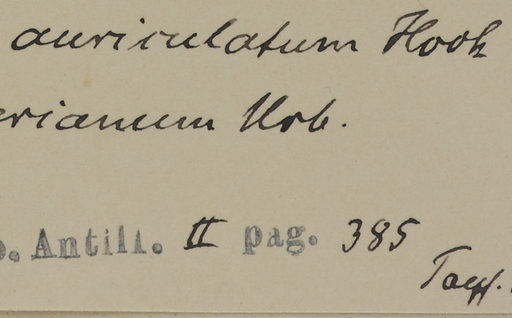 auriculatum Hook
erianum Urb.
b. Antill. II pag. 385